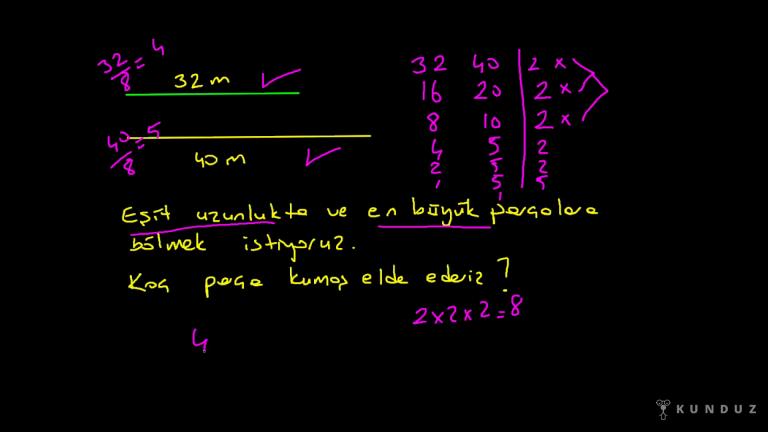 32/8 = 4
32 m
40/8 = 5
40 m
32 40 | 2 x
16 20 | 2 x
8 10 | 2 x
4 5 | 2
2 5 | 2
1 5 | 5
1
Eşit uzunlukta ve en büyük parçalara
bölmek istiyoruz.
Kaç parça kumaş elde ederiz ?
2 x 2 x 2 = 8
4
KUNDUZ